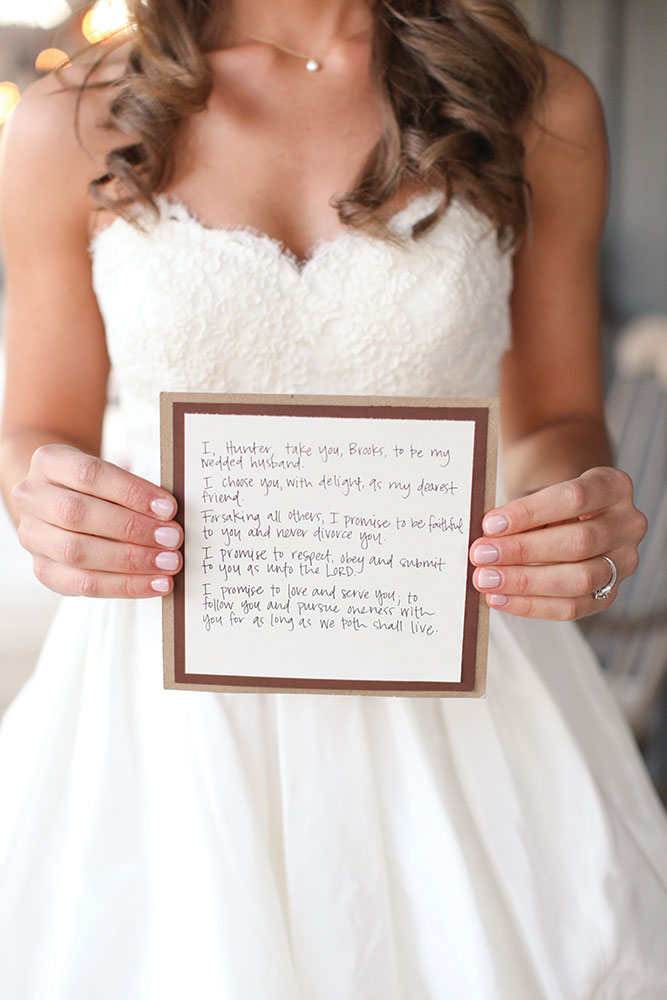 I, Hunter, take you, Brooks, to be my
wedded husband.
I choose you, with delight, as my dearest
friend.
Forsaking all others, I promise to be faithful
to you and never divorce you.
I promise to respect, obey and submit
to you as unto the LORD.
I promise to love and serve you; to
follow you and pursue oneness with
you for as long as we both shall live.